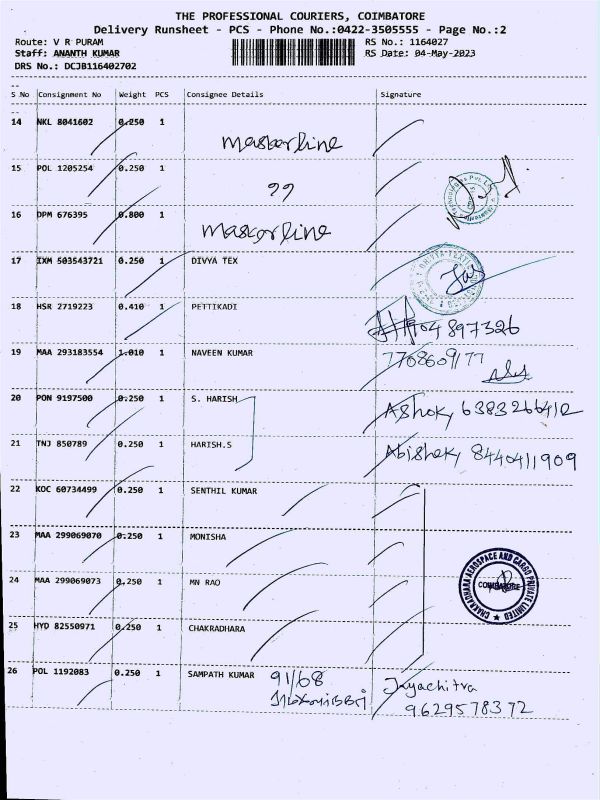 THE PROFESSIONAL COURIERS, COIMBATORE
Delivery Runsheet - PCS - Phone No.:0422-3505555 - Page No.:2
Route: V R PURAM RS No.: 1164027
Staff: ANANTH KUMAR RS Date: 04-May-2023
DRS No.: DCJB116402702
S No Consignment No Weight PCS Consignee Details Signature
14 NKL 8041602 0.250 1
Masterline
15 POL 1205254 0.250 1
99
16 DPM 676395 0.800 1 Masterline
17 IXM 503543721 0.250 1 DIVYA TEX
18 HSR 2719223 0.410 1 PETTIKADI
19 MAA 293183554 1.010 1 NAVEEN KUMAR 7708609177
20 PON 9197500 0.250 1 S. HARISH Ashok, 6383266412
21 TNJ 850789 0.250 1 HARISH.S Abishek, 8440411909
22 KOC 60734499 0.250 1 SENTHIL KUMAR
23 MAA 299069070 0.250 1 MONISHA
24 MAA 299069073 0.250 1 MN RAO
CHAKRADHARA AEROSPACE AND CARGO PRIVATE LIMITED
COIMBATORE
25 HYD 82550971 0.250 1 CHAKRADHARA
26 POL 1192083 0.250 1 SAMPATH KUMAR 91/68 Jayachitra
9629578372